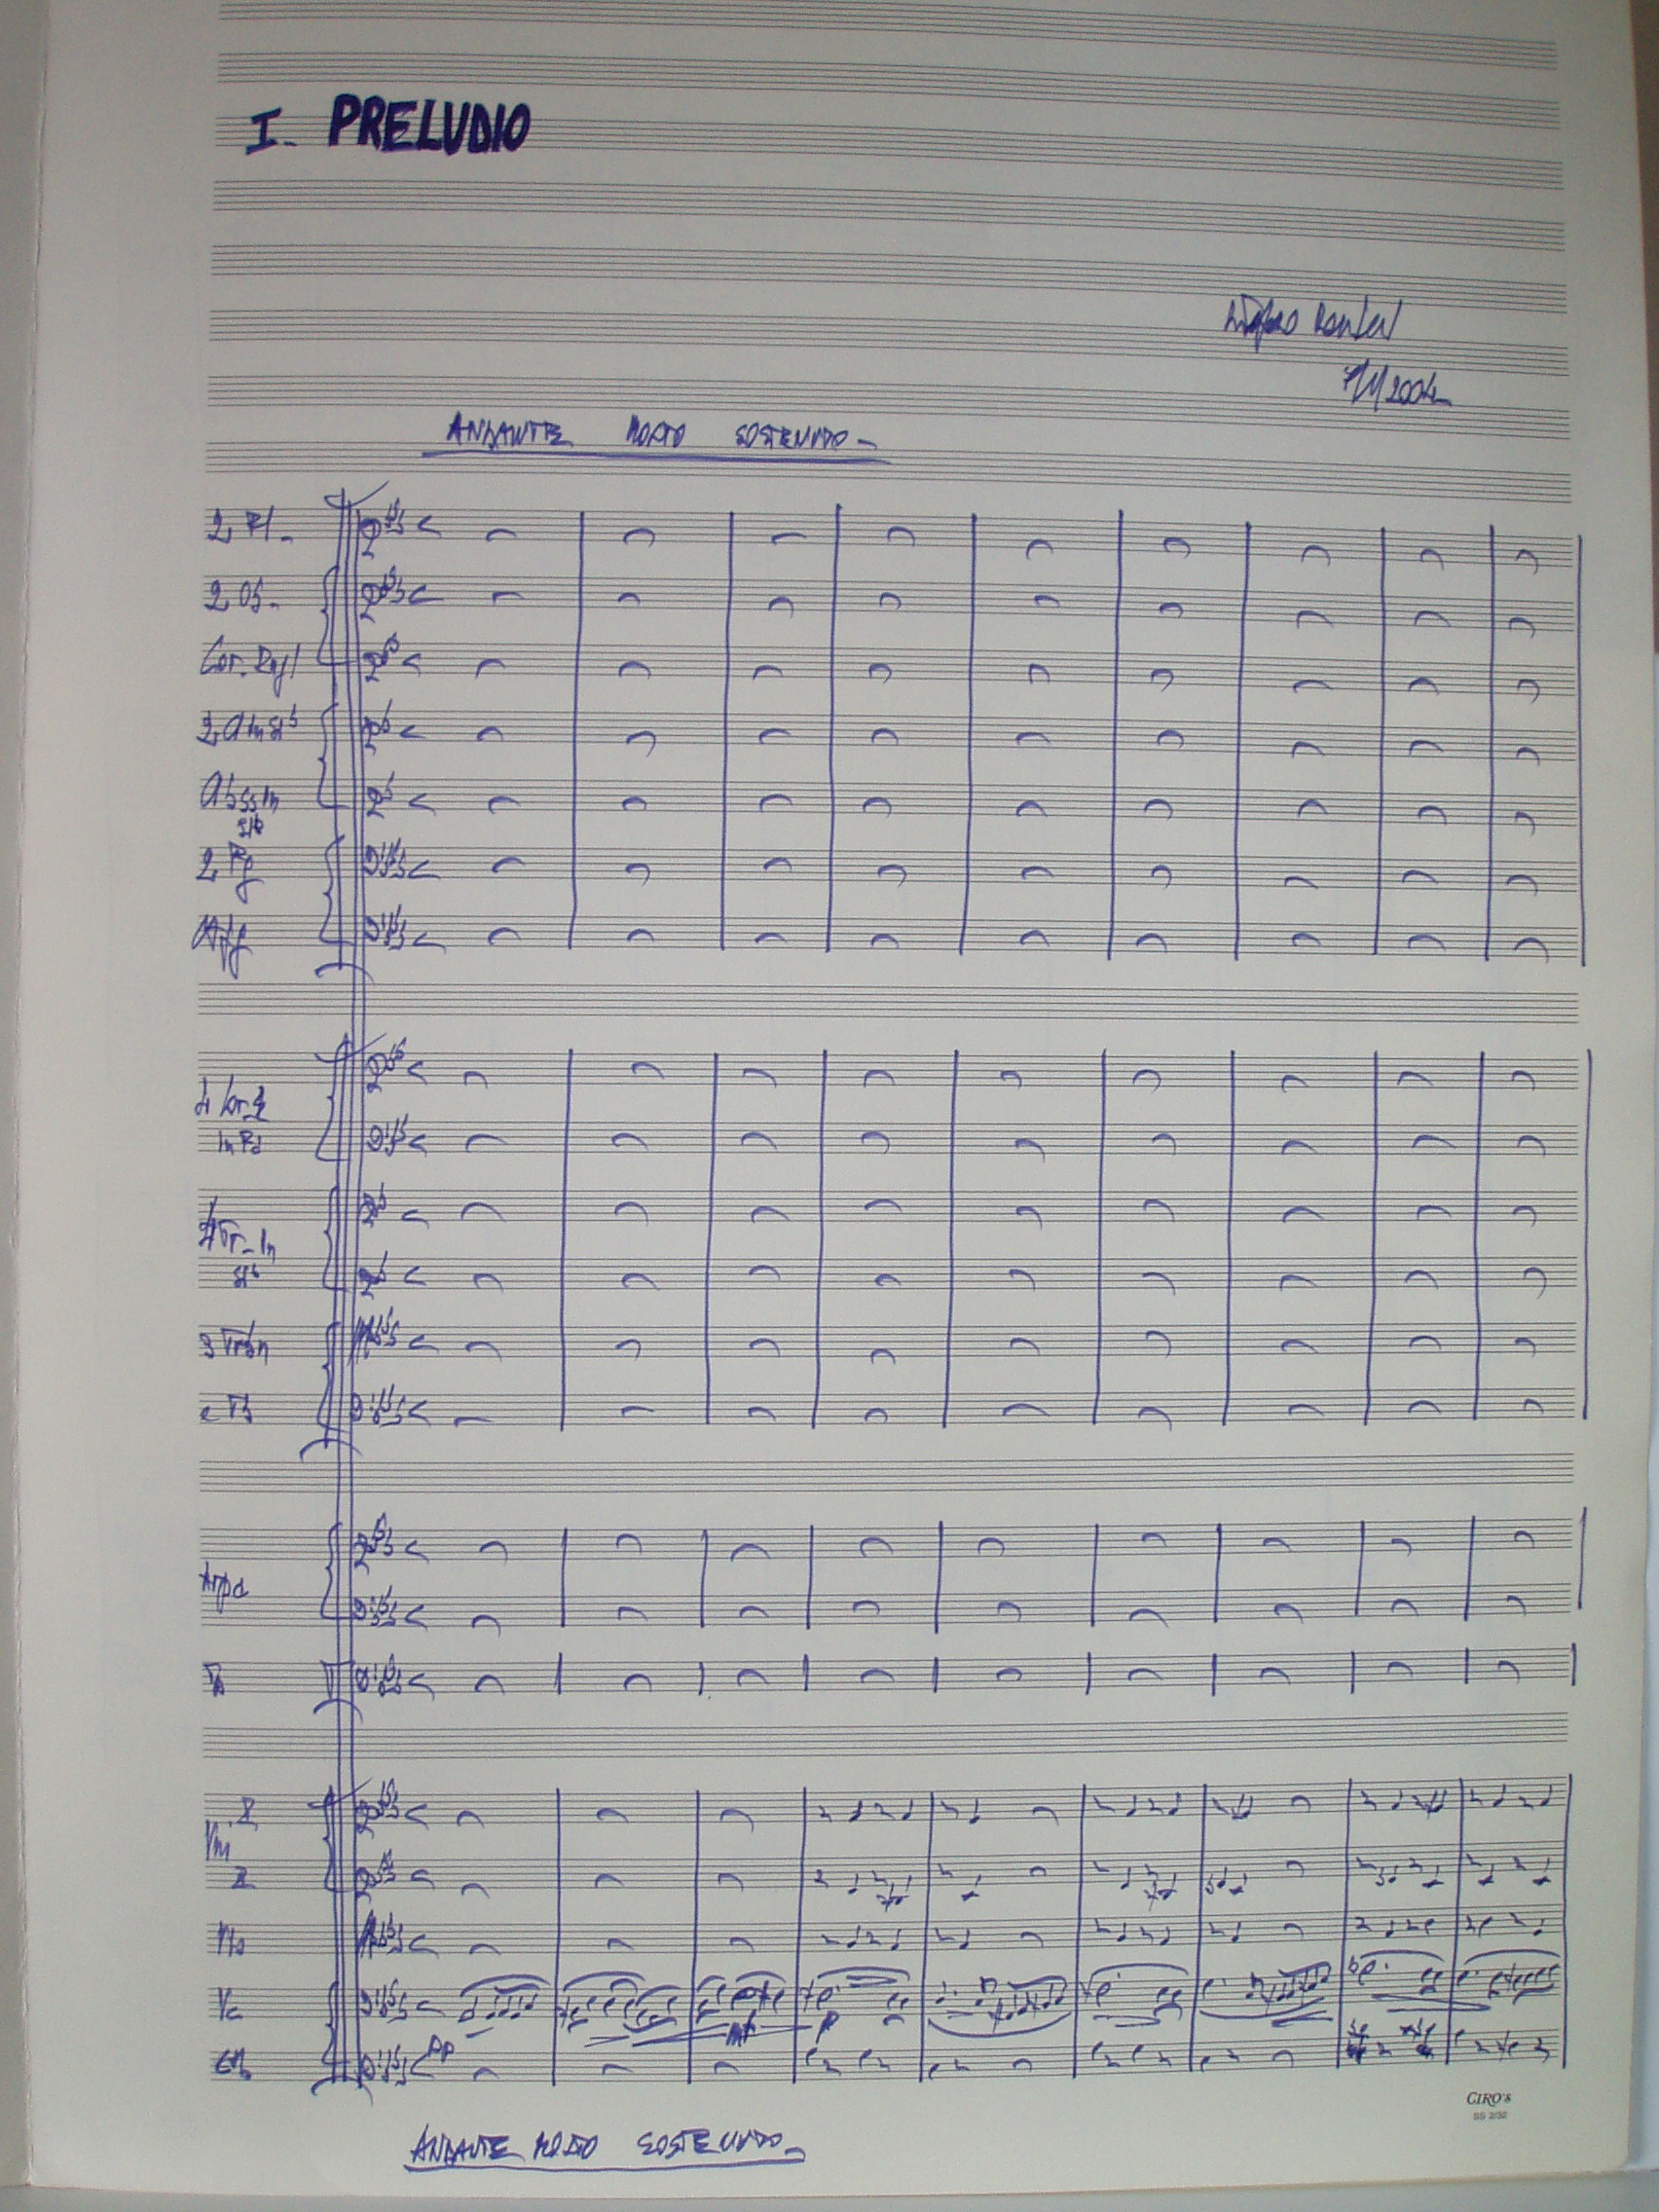 I. PRELUDIO
ANDANTE MOLTO SOSTENUTO -
2 Fl.
2 Ob.
Cor. Ingl
2 Cl in si♭
2 Fg
Cfg
4 Cor.
in Fa
Tr. in
si♭
3 Trbn
e Tb
Arpa
Vni
Vc
pp
mf
p
CIRO's
SS 2/32
ANDANTE MOLTO SOSTENUTO -